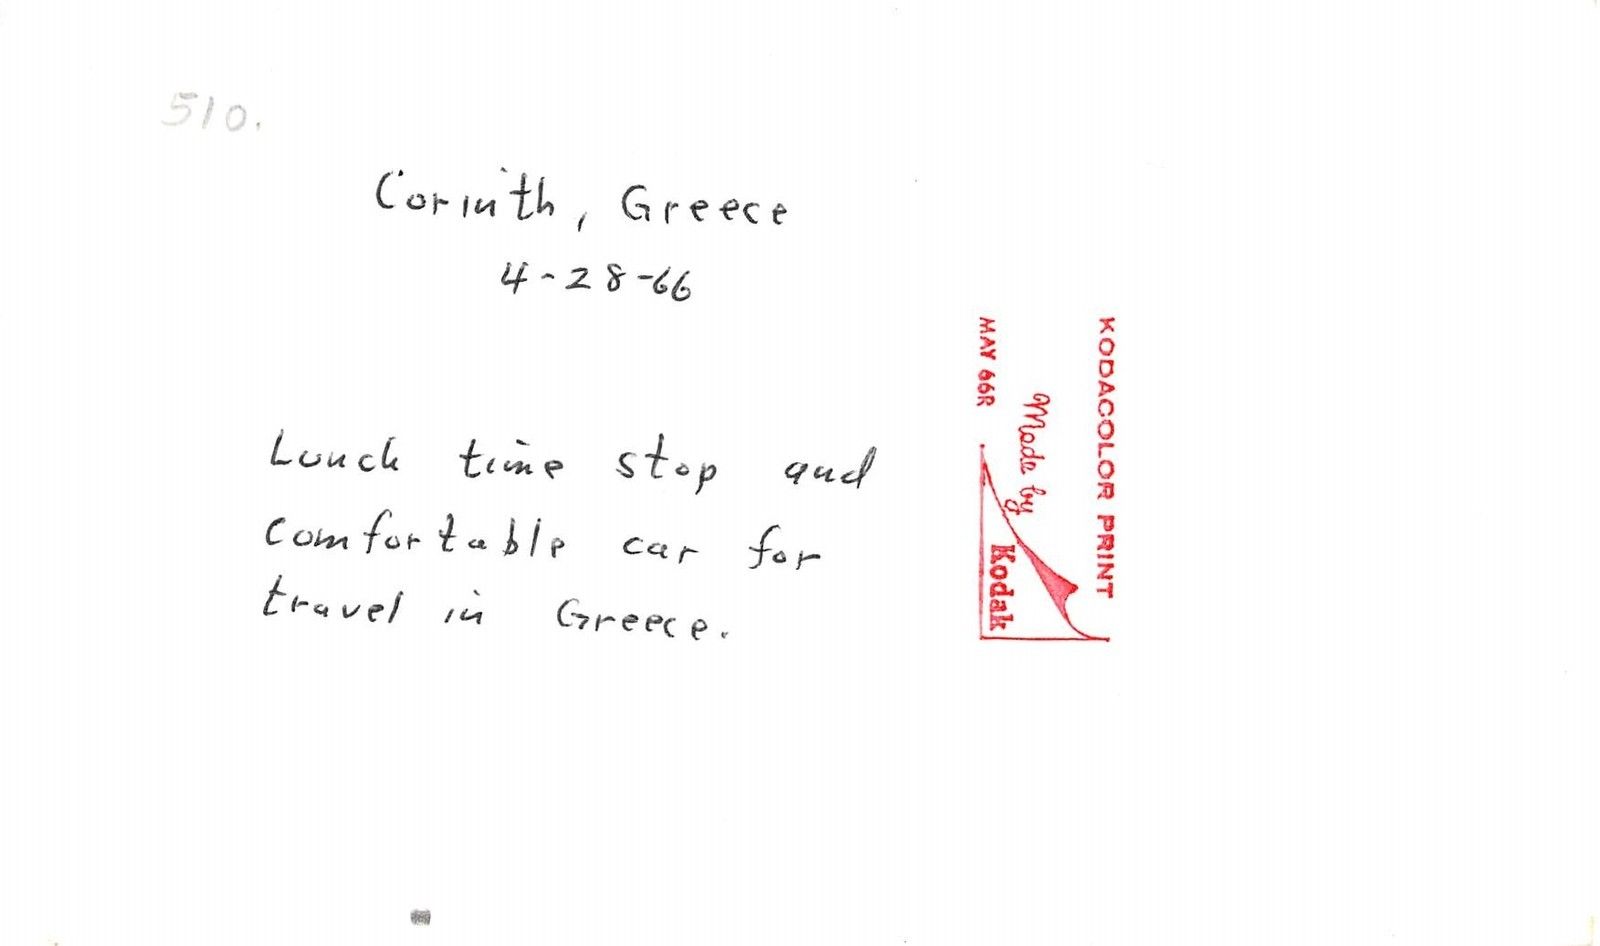 510.
Corinth, Greece
4-28-66
Lunch time stop and
comfortable car for
travel in Greece.
KODACOLOR PRINT
Made by
Kodak
MAY 66R